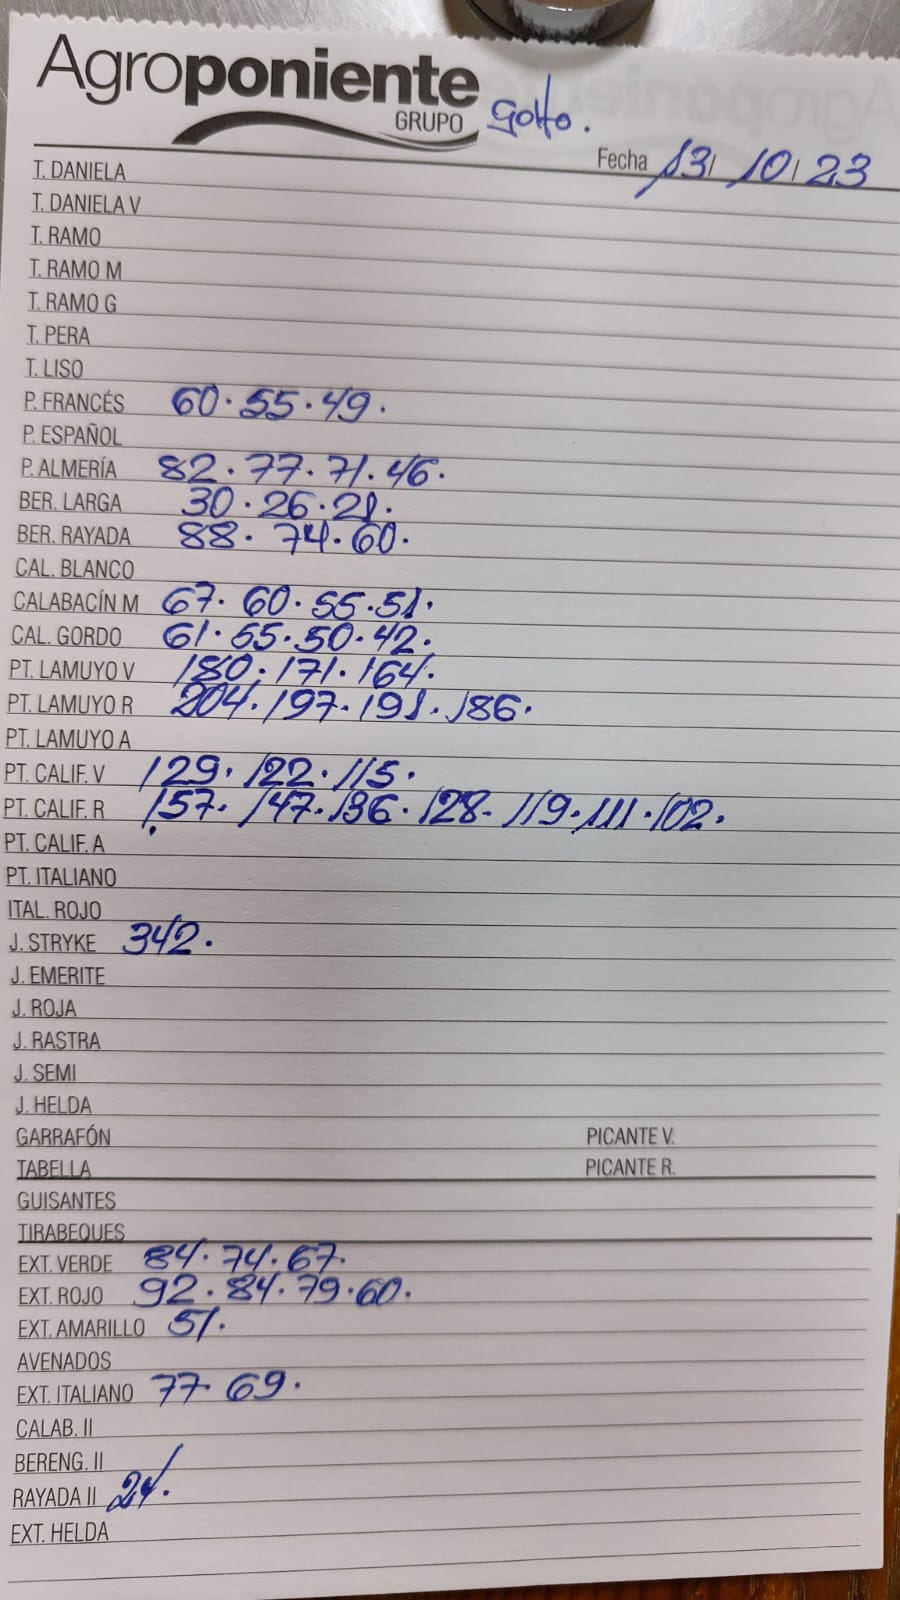 Agroponiente
GRUPO
Golfo.
Fecha 13/ 10/ 23
T. DANIELA
T. DANIELA V
T. RAMO
T. RAMO M
T. RAMO G
T. PERA
T. LISO
P. FRANCÉS 60. 55. 49.
P. ESPAÑOL
P. ALMERÍA 82. 77. 71. 46.
BER. LARGA 30. 26. 21.
BER. RAYADA 88. 74. 60.
CAL. BLANCO
CALABACÍN M 67. 60. 55. 51.
CAL. GORDO 61. 55. 50. 42.
PT. LAMUYO V 180. 171. 164.
PT. LAMUYO R 204. 197. 191. 186.
PT. LAMUYO A
PT. CALIF. V 129. 122. 115.
PT. CALIF. R 157. 147. 136. 128. 119. 111. 102.
PT. CALIF. A
PT. ITALIANO
ITAL. ROJO
J. STRYKE 342.
J. EMERITE
J. ROJA
J. RASTRA
J. SEMI
J. HELDA
GARRAFÓN PICANTE V.
TABELLA PICANTE R.
GUISANTES
TIRABEQUES
EXT. VERDE 84. 74. 67.
EXT. ROJO 92. 84. 79. 60.
EXT. AMARILLO 51.
AVENADOS
EXT. ITALIANO 77. 69.
CALAB. II
BERENG. II
RAYADA II
EXT. HELDA